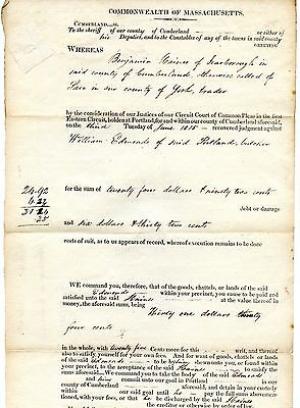 COMMONWEALTH OF MASSACHUSETTS.
CUMBERLAND, ss.
To the sheriff of our county of Cumberland or either of
his Deputies, and to the Constables of any of the towns in said county
GREETING.
WHEREAS
Benjamin Haines of Scarborough in
said county of Cumberland, otherwise called of
Saco in our county of York, trader
by the consideration of our Justices of our Circuit Court of Common Pleas in the first
Eastern Circuit, holden at Portland, for and within our county of Cumberland aforesaid,
on the third Tuesday of June 1815 recovered judgment against
William Edmonds of said Portland,
24.92
6.32
31.24
for the sum of twenty four dollars & ninety two cents
debt or damage
and six dollars & thirty two cents
costs of suit, as to us appears of record, whereof execution remains to be done
WE command you, therefore, that of the goods, chattels, or lands of the said
Edmonds within your precinct, you cause to be paid and
satisfied unto the said Haines at the value thereof in
money, the aforesaid sum, being
Thirty one dollars twenty
four cents
in the whole, with twenty five Cents more for this writ, and thereof
also to satisfy yourself for your own fees. And for want of goods, chattels or lands
of the said Edmonds to be by shewn unto you, or found in
your precinct, to the acceptance of the said Haines to satisfy the
sums aforesaid: We command you to take the body of the said Edmonds
and him commit unto our goal in Portland in our
county of Cumberland aforesaid, and detain in your custody
within our said goal until he pay the full sums above-
mentioned, with your fees, or that he be discharged by the said
Haines
the creditor or otherwise by order of law.